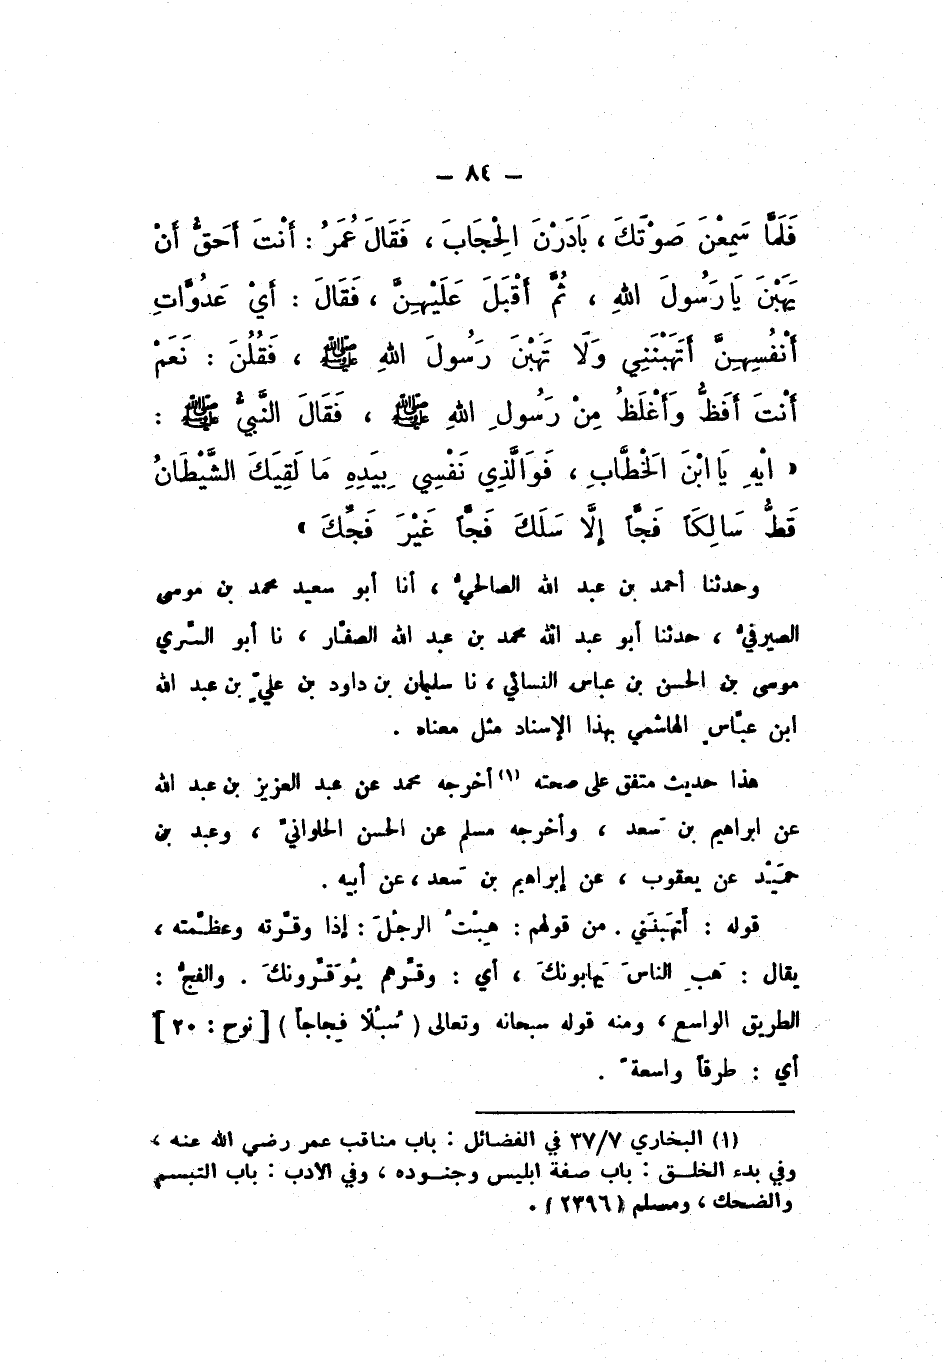 – ٨٤ –
فَلَمَّا سَمِعْنَ صَوْتَكَ ، بَادَرْنَ الْحِجَابَ ، فَقَالَ عُمَرُ : أَنْتَ أَحَقُّ أَنْ
يَهَبْنَ يَا رَسُولَ اللهِ ، ثُمَّ أَقْبَلَ عَلَيْهِنَّ ، فَقَالَ : أَيْ عَدُوَّاتِ
أَنْفُسِهِنَّ أَتَهَبْنَنِي وَلَا تَهَبْنَ رَسُولَ اللهِ ﷺ ، فَقُلْنَ : نَعَمْ
أَنْتَ أَفَظُّ وَأَغْلَظُ مِنْ رَسُولِ اللهِ ﷺ ، فَقَالَ النَّبِيُّ ﷺ :
« ايْهِ يَا ابْنَ الْخَطَّابِ ، فَوَالَّذِي نَفْسِي بِيَدِهِ مَا لَقِيَكَ الشَّيْطَانُ
قَطُّ سَالِكَاً فَجَّاً إِلَّا سَلَكَ فَجَّاً غَيْرَ فَجِّكَ »
وحدثنا أحمد بن عبد الله الصالحيُّ ، أنا أبو سعيد محمد بن موسى
الصيرفيُّ ، حدثنا أبو عبد الله محمد بن عبد الله الصفّار ، نا أبو السَّري
موسى بن الحسن بن عباس النسائي ، نا سليمان بن داود بن عليِّ بن عبد الله
ابن عبَّاسٍ الهاشمي بهذا الإسناد مثل معناه .
هذا حديث متفق على صحته (١) أخرجه محمد عن عبد العزيز بن عبد الله
عن ابراهيم بن سَعد ، وأخرجه مسلم عن الحسن الحلوانيِّ ، وعبد بن
حمَيْد عن يعقوب ، عن إبراهيم بن سَعد ، عن أبيه .
قوله : أَتَهَبنَني . من قولهم : هِبْتُ الرجُلَ : إذا وقَّرته وعظَّمته ،
يقال : هَبِ الناسَ يَهابونكَ ، أي : وقِّرهم يُوَقِّرونكَ . والفجُّ :
الطريق الواسع ، ومنه قوله سبحانه وتعالى ( سُبُلًا فِجاجاً ) [ نوح : ٢٠ ]
أي : طرقاً واسعة ً .
(١) البخاري ٣٧/٧ في الفضائل : باب مناقب عمر رضي الله عنه ،
وفي بدء الخلق : باب صفة ابليس وجنوده ، وفي الأدب : باب التبسم
والضحك ، ومسلم (٢٣٩٦) .